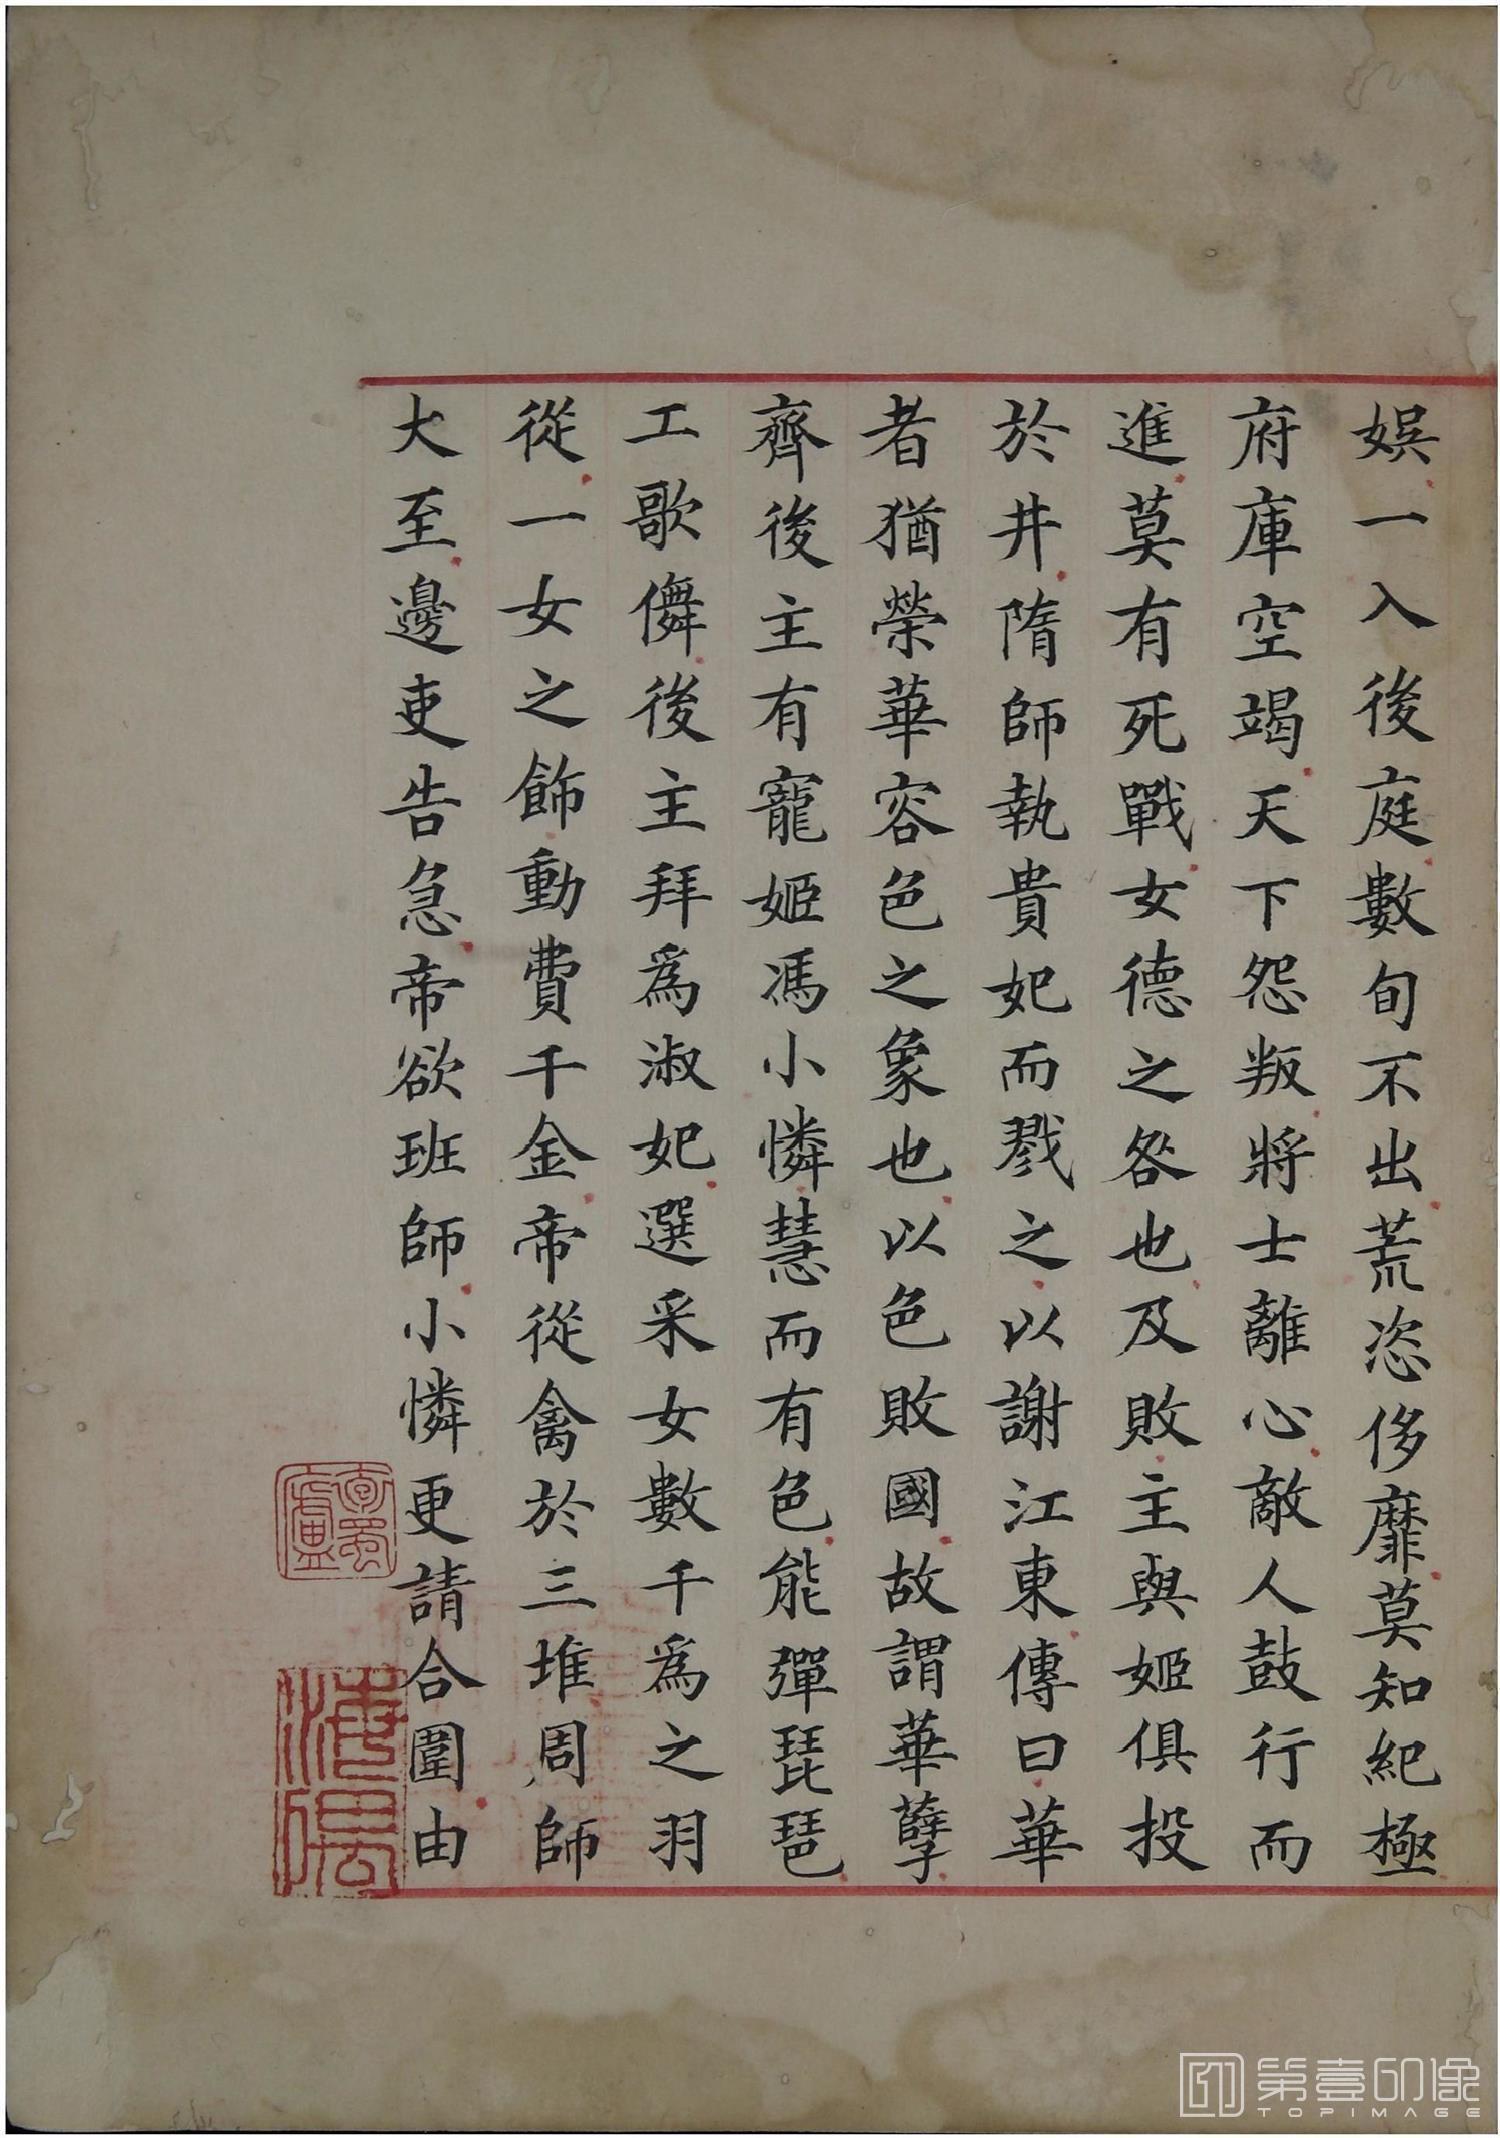 娯一入後庭數旬不出荒恣侈靡莫知紀極
府庫空竭天下怨叛將士離心敵人鼓行而
進莫有死戰女德之咎也及敗主與姬俱投
於井隋師執貴妃而戮之以謝江東傳曰華
者猶榮華容色之象也以色敗國故謂華孽
齊後主有寵姬馮小憐慧而有色能彈琵琶
工歌儛後主拜為淑妃選采女數千為之羽
從一女之飾動費千金帝從禽於三堆周師
大至邊吏告急帝欲班師小憐更請合圍由
第壹印像
TOPIMAGE